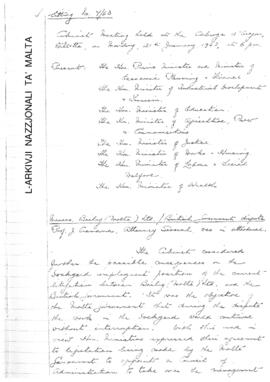 Sitting No 7/63
L-ARKIVJI NAZZJONALI TA' MALTA
Cabinet Meeting held at the Auberge d'Aragon,
Valletta, on Monday, 21st January 1963, at 6 p.m.
Present: The Hon. Prime Minister and Minister of
Economic Planning & Finance
The Hon. Minister of Industrial Development &
Tourism
The Hon. Minister of Education
The Hon. Minister of Agriculture, Power
& Communications
The Hon. Minister of Justice
The Hon. Minister of Works & Housing
The Hon. Minister of Labour & Social
Welfare
The Hon. Minister of Health
Messrs. Bailey (Malta) Ltd / British Government dispute
Prof. J. Cremona, Attorney General was in attendance.
The Cabinet considered
further the possible consequences on the
Dockyard employment position of the current
litigation between Bailey (Malta) Ltd. and the
British Government. It was the objective of
the Malta Government that during the dispute
the work in the Dockyard would continue
without interruption. With this aim in
view Ministers expressed their agreement
to legislation being made by the Malta
Government to appoint a Council of
Administration to take over the management